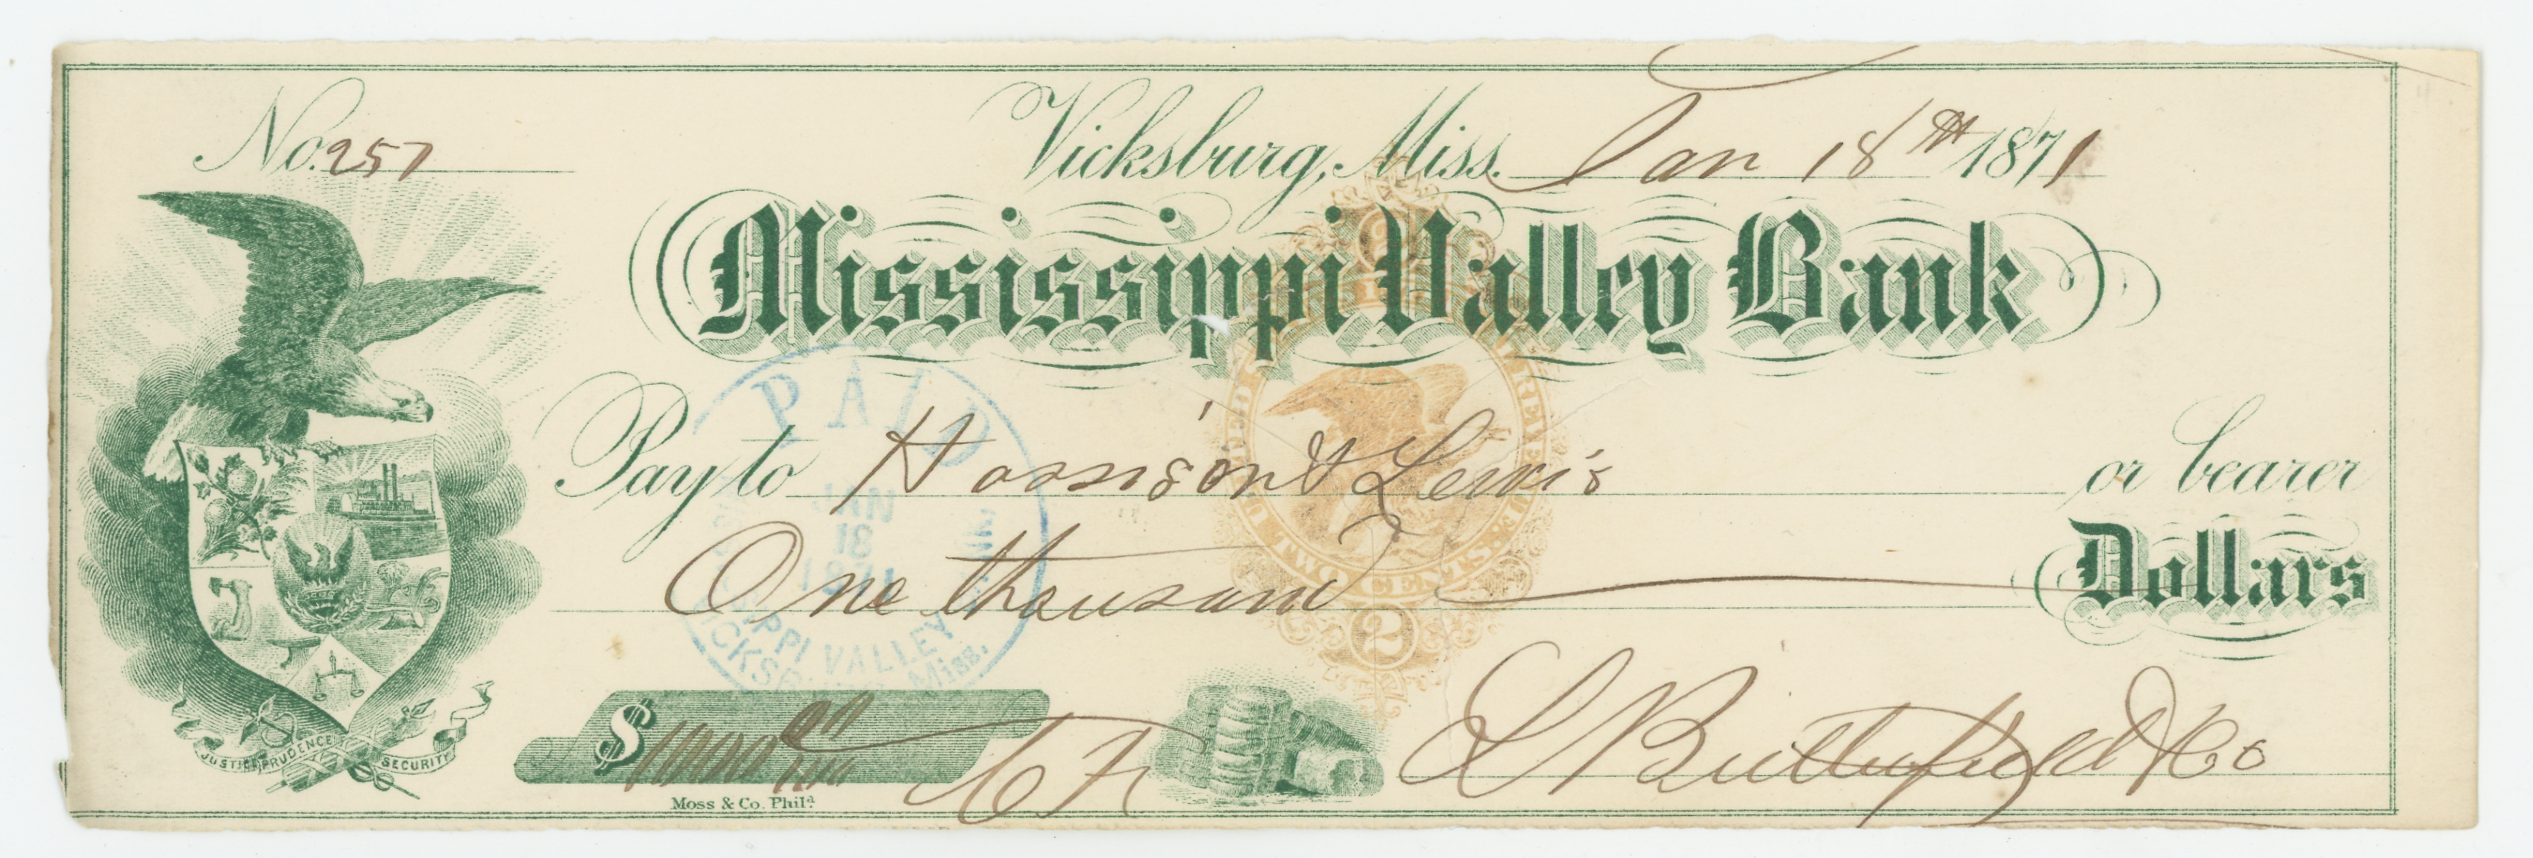 No. 257 Vicksburg, Miss. Jan 18th 1871
Mississippi Valley Bank
Pay to Harrison & Lewis or bearer
One thousand Dollars
$1000 00/100
L Butterfield & Co
JUSTICE PRUDENCE SECURITY
Moss & Co. Phila
PAID
JAN
18
1871
MISSISSIPPI VALLEY BANK
VICKSBURG, Miss.
U.S. INTER. REVENUE
TWO CENTS.
2